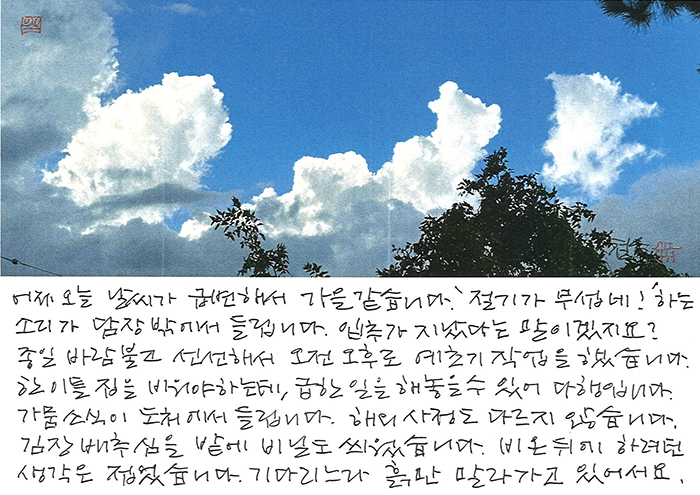 어제 오늘 날씨가 급변해서 가을같습니다. '절기가 무섭네!' 하는
소리가 담장밖에서 들립니다. 입추가 지났다는 말이겠지요?
종일 바람불고 선선해서 오전 오후로 예초기 작업을 했습니다.
한 이틀 집을 비워야하는데, 급한 일을 해놓을수 있어 다행입니다.
가뭄소식이 도처에서 들립니다. 해외 사정도 다르지 않습니다.
김장 배추 심을 밭에 비닐도 씌웠습니다. 비온 뒤에 하려던
생각은 접었습니다. 기다리느라 흙만 말라가고 있어서요.